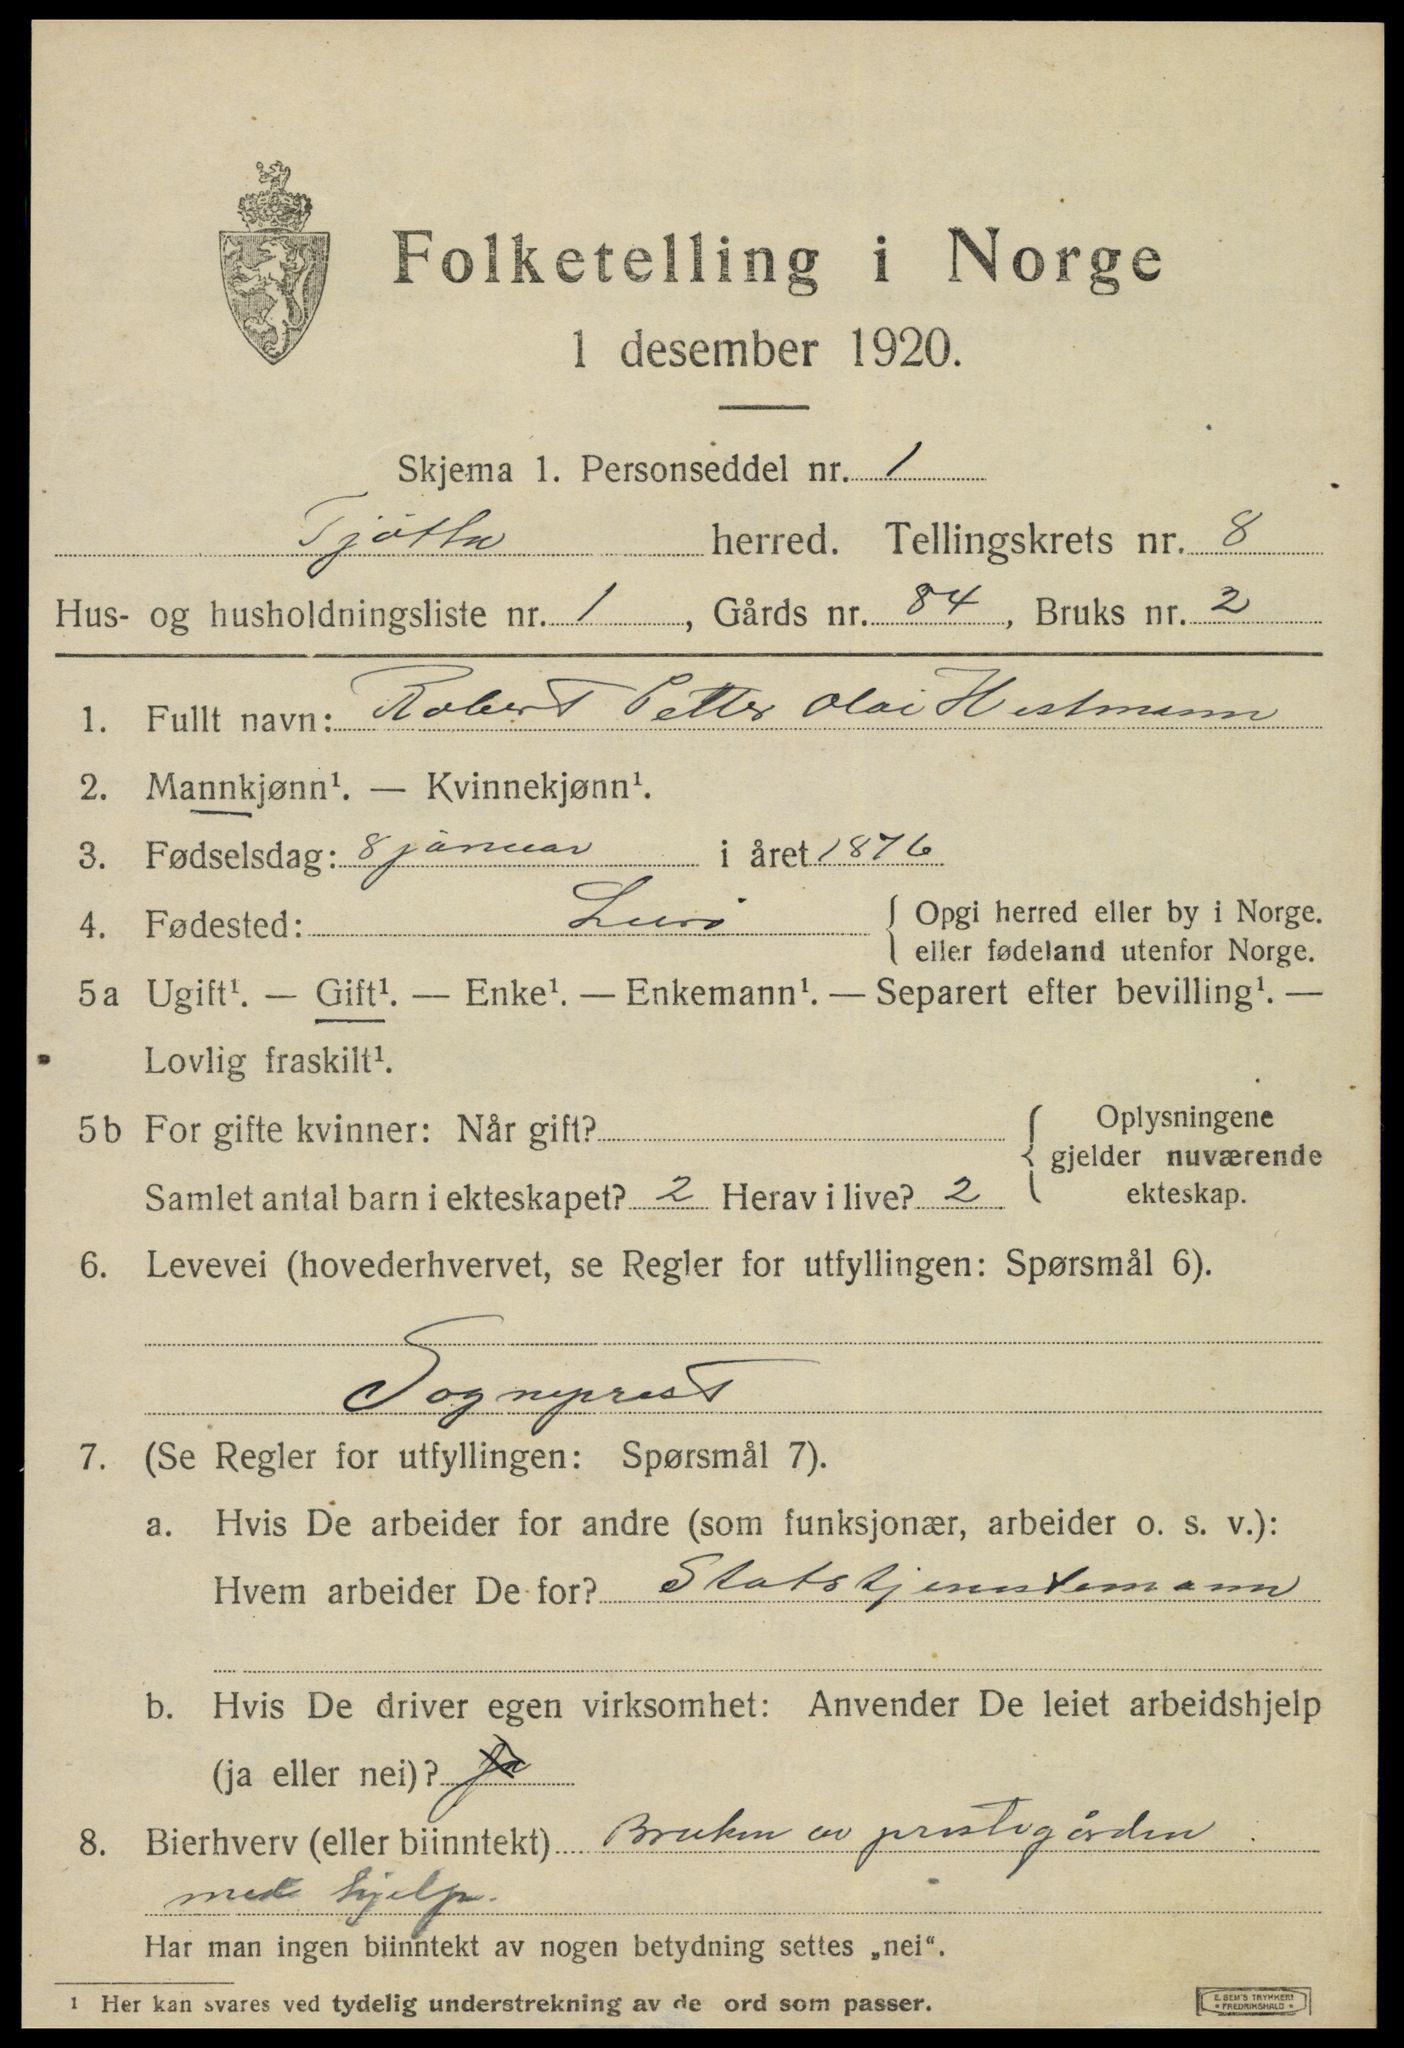 Folketelling i Norge
1 desember 1920.
Skjema 1. Personseddel nr. 1
Tjøtta herred. Tellingskrets nr. 8
Hus- og husholdningsliste nr. 1, Gårds nr. 84, Bruks nr. 2
1. Fullt navn: Robert Petter Olai Hestmann
2. Mannkjønn¹. — Kvinnekjønn¹.
3. Fødselsdag: 8 januar i året 1876
4. Fødested: Lurø { Opgi herred eller by i Norge.
eller fødeland utenfor Norge.
5a Ugift¹. — Gift¹. — Enke¹. — Enkemann¹. — Separert efter bevilling¹. —
Lovlig fraskilt¹.
5b For gifte kvinner: Når gift?
Samlet antal barn i ekteskapet? 2 Herav i live? 2
Oplysningene
gjelder nuværende
ekteskap.
6. Levevei (hovederhvervet, se Regler for utfyllingen: Spørsmål 6).
Sogneprest
7. (Se Regler for utfyllingen: Spørsmål 7).
a. Hvis De arbeider for andre (som funksjonær, arbeider o. s. v.):
Hvem arbeider De for? Statstjenestemann
b. Hvis De driver egen virksomhet: Anvender De leiet arbeidshjelp
(ja eller nei)? Ja
8. Bierhverv (eller biinntekt) Bruken av prestegården
med hjelp.
Har man ingen biinntekt av nogen betydning settes „nei“.
1 Her kan svares ved tydelig understrekning av de ord som passer.
E. SEM'S TRYKKERI
• FREDRIKSHALD •